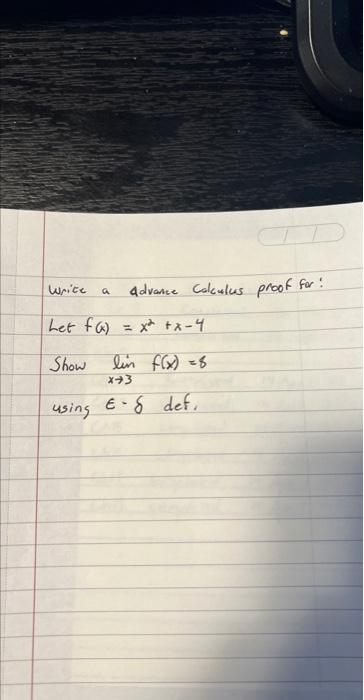 Write a advance Calculus proof for:
Let f(x) = x² + x - 4
Show lim f(x) = 8
x→3
using ε - δ def.